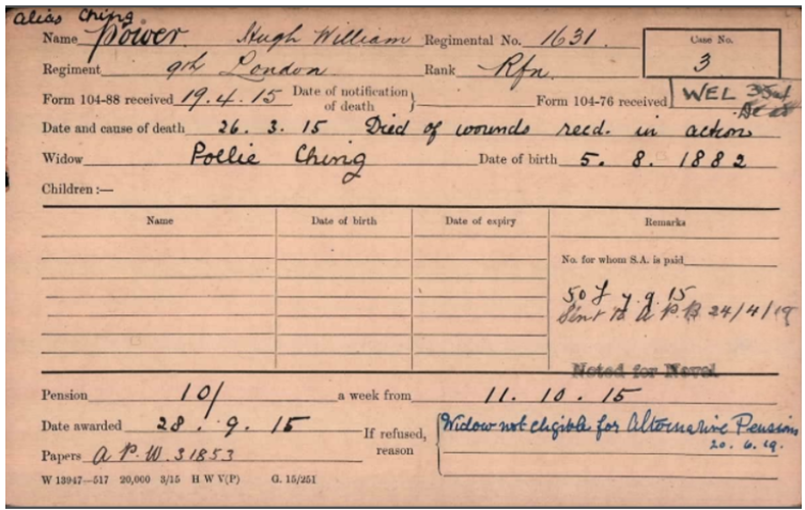 alias Ching
Name Power Hugh William Regimental No. 1631. Case No.
3
Regiment 9th London Rank Rfn.
Form 104-88 received 19.4.15 Date of notification of death } Form 104-76 received WEL
Date and cause of death 26.3.15 Died of wounds recd. in action
Widow Pollie Ching Date of birth 5.8.1882
Children :—
Name Date of birth Date of expiry Remarks
No. for whom S.A. is paid
7.9.15
Sent to A P B 24/4/19
Noted for Novel
Pension 10/ a week from 11.10.15
Date awarded 28.9.15 If refused, reason Widow not eligible for Alternative Pension
20.6.19.
Papers A P.W. 31853
W 13947—517 20,000 3/15 H W V(P) G. 15/251